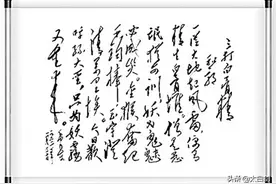 三打白骨精
一从大地起风雷便有
精生白骨堆僧是愚
氓犹可训妖为鬼蜮
必成灾金猴奋起
千钧棒玉宇澄
清万里埃今日欢
呼孙大圣只为妖雾
又重来
头条